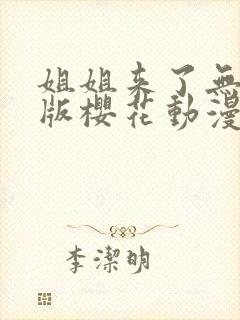 姐姐来了無
版櫻花動漫
李潔明